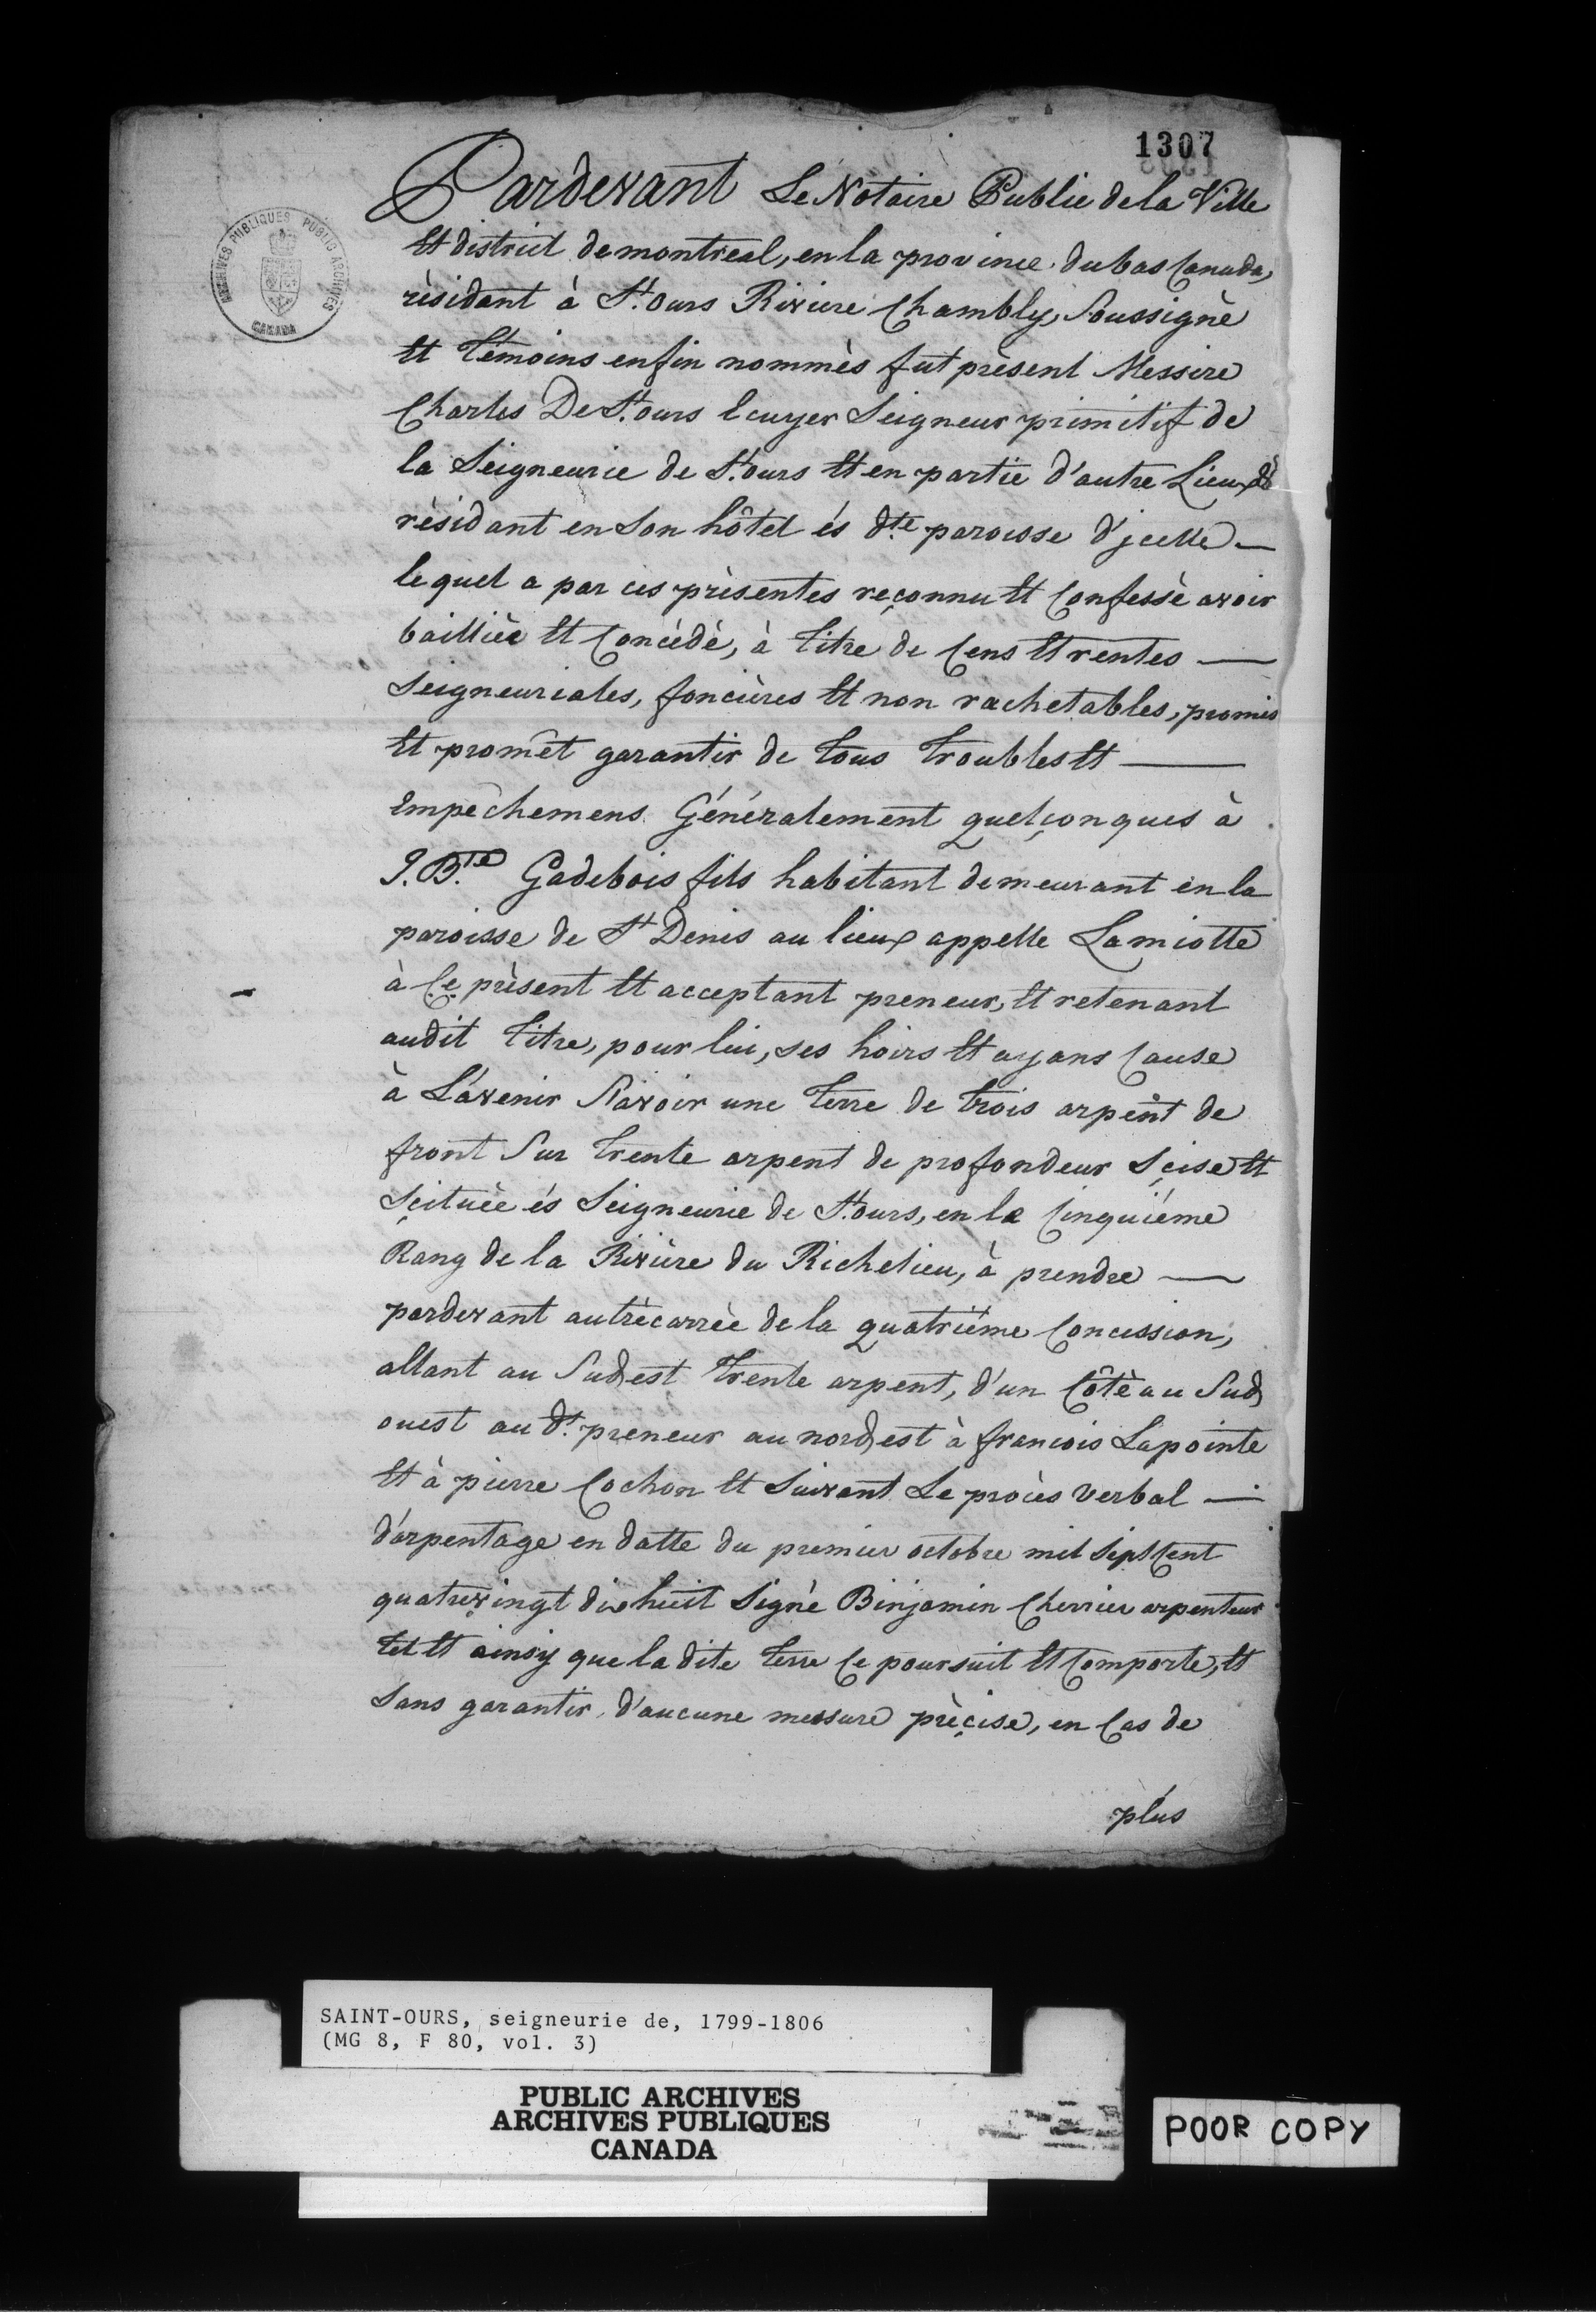 1307
Pardevant Le Notaire Public de la Ville
Et district de montreal, en la province du bas Canada,
rèsidant à St. Ours Riviere Chambly, Soussignè
Et Tèmoins enfin nommès fut prèsent Messire
Charles De St. ours Ecuyer Seigneur primitif de
la Seigneurie de St. ours Et en partie d'autre Lieux
rèsidant en Son hôtel és dte. paroisse d'jcelle —
lequel a par ces prèsentes reçonnu Et Confessè avoir
baillièe Et Concèdè, à titre de Cens Et rentes —
Seigneuriales, foncières Et non rachetables, promis
Et promêt garantir de Tous Troubles Et —
Empêchemens Généralement quelçonques à
J. Bte. Gadebois fils habitant demeurant en la
paroisse de St Denis au lieux appelle Lamiotte
à Çe prèsent Et acceptant preneur, Et retenant
audit Titre, pour lui, ses hoirs Et ayans Cause
à L'avenir Savoir une Terre de Trois arpent de
front Sur Trente arpent de profondeur Sçise Et
Sçituèe és Seigneurie de St. ours, en le Cinquiéme
Rang de la Rivière du Richelieu, à prendre —
pardevant autrècarrèe de la quatriéme Concession,
allant au Sud est Trente arpent, d'un Côtè au Sud
ouest au dt. preneur au nord est à francois Lapointe
Et à pierre Cochon Et Suivant Le procès verbal —
d'arpentage en datte du premier octobre mil Sept Cent
quatrevingt dix huit Signè Binjamin Cherrier arpenteur
tel Et ainsy que la dite Terre Ce poursuit Et Comporte, Et
Sans garantir d'aucune messure prèçise, en Cas de
plus
ARCHIVES PUBLIQUES PUBLIC ARCHIVES
CANADA
SAINT-OURS, seigneurie de, 1799-1806
(MG 8, F 80, vol. 3)
PUBLIC ARCHIVES
ARCHIVES PUBLIQUES
CANADA
POOR COPY